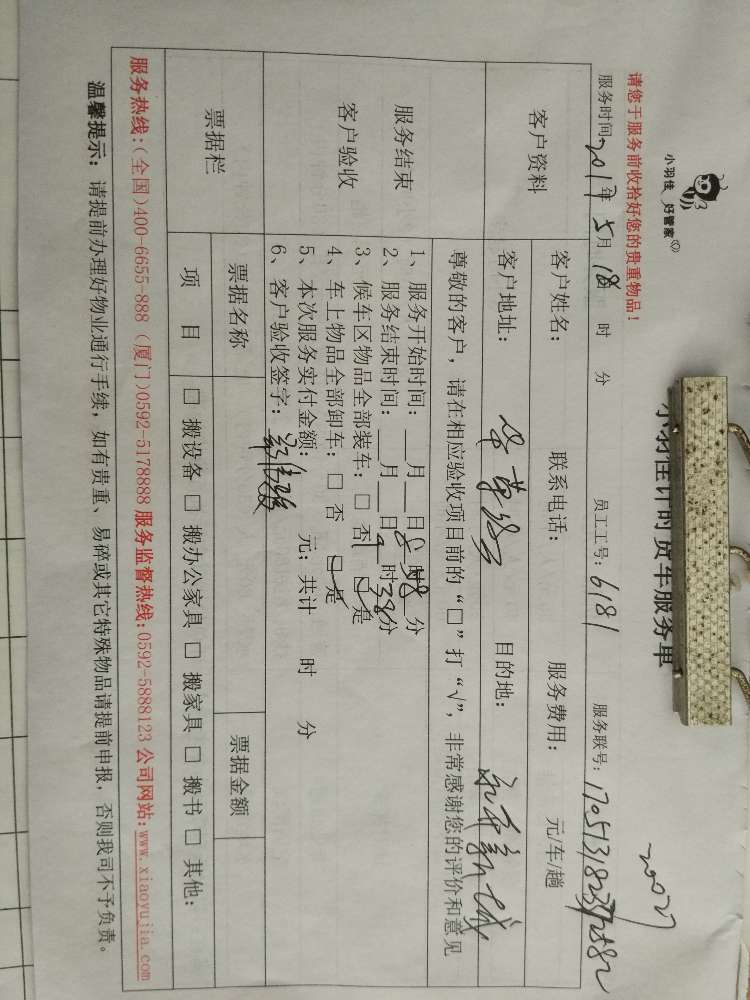 小羽佳 好管家
小羽佳计时货车服务单
20027
请您于服务前收拾好您的贵重物品！
服务时间：2017年5月18 时 分 员工工号：6181 服务联号：
客户资料
客户姓名： 联系电话： 服务费用： 元/车/趟
客户地址： 目的地：
服务结束
客户验收
尊敬的客户，请在相应验收项目前的“□”打“√”，非常感谢您的评价和意见
1、服务开始时间：__月__日8时58分
2、服务结束时间：__月__日9时38分
3、候车区物品全部装车：□ 否 □ 是
4、车上物品全部卸车：□ 否 □ 是
5、本次服务实付金额： 元；共计 时 分
6、客户验收签字：
票据栏
票据名称 票据金额
项 目 □ 搬设备 □ 搬办公家具 □ 搬家具 □ 搬书 □ 其他：
服务热线：(全国)400-6655-888 (厦门)0592-5178888 服务监督热线：0592-5888123 公司网站：www.xiaoyujia.com
温馨提示：请提前办理好物业通行手续，如有贵重、易碎或其它特殊物品请提前申报，否则我司不予负责。